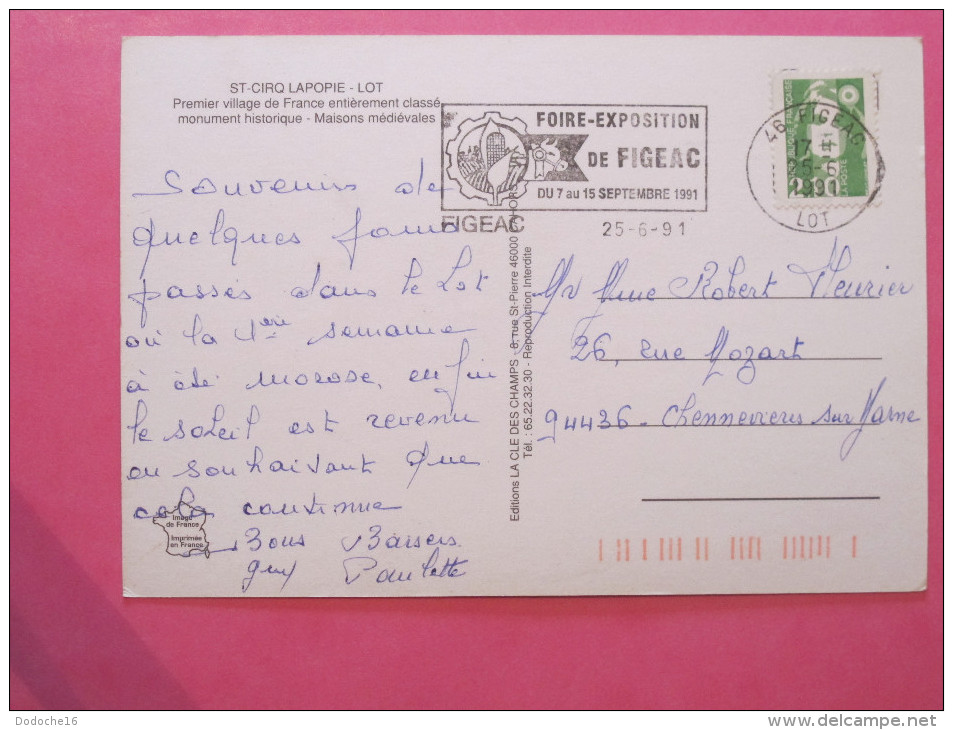 ST-CIRQ LAPOPIE - LOT
Premier village de France entièrement classé
monument historique - Maisons médiévales
FOIRE-EXPOSITION
DE FIGEAC
DU 7 au 15 SEPTEMBRE 1991
FIGEAC
25-6-91
46 FIGEAC
17 H
25-6
1991
LOT
RÉPUBLIQUE FRANÇAISE
LA POSTE
Souvenirs de
quelques jours
passés dans le Lot
où la 1ère semaine
à été morose, enfin
le soleil est revenu
en souhaitant que
cela continue
Bons Baisers
Guy Paulette
Image
de France
Imprimée
en France
Editions LA CLE DES CHAMPS - 8, rue St-Pierre 46000 CAHORS
Tél. : 65.22.32.30 - Reproduction Interdite
Mr Mme Robert Fleurier
26, rue Mozart
94436 - Chennevieres sur Marne
Dodoche16
www.delcampe.net